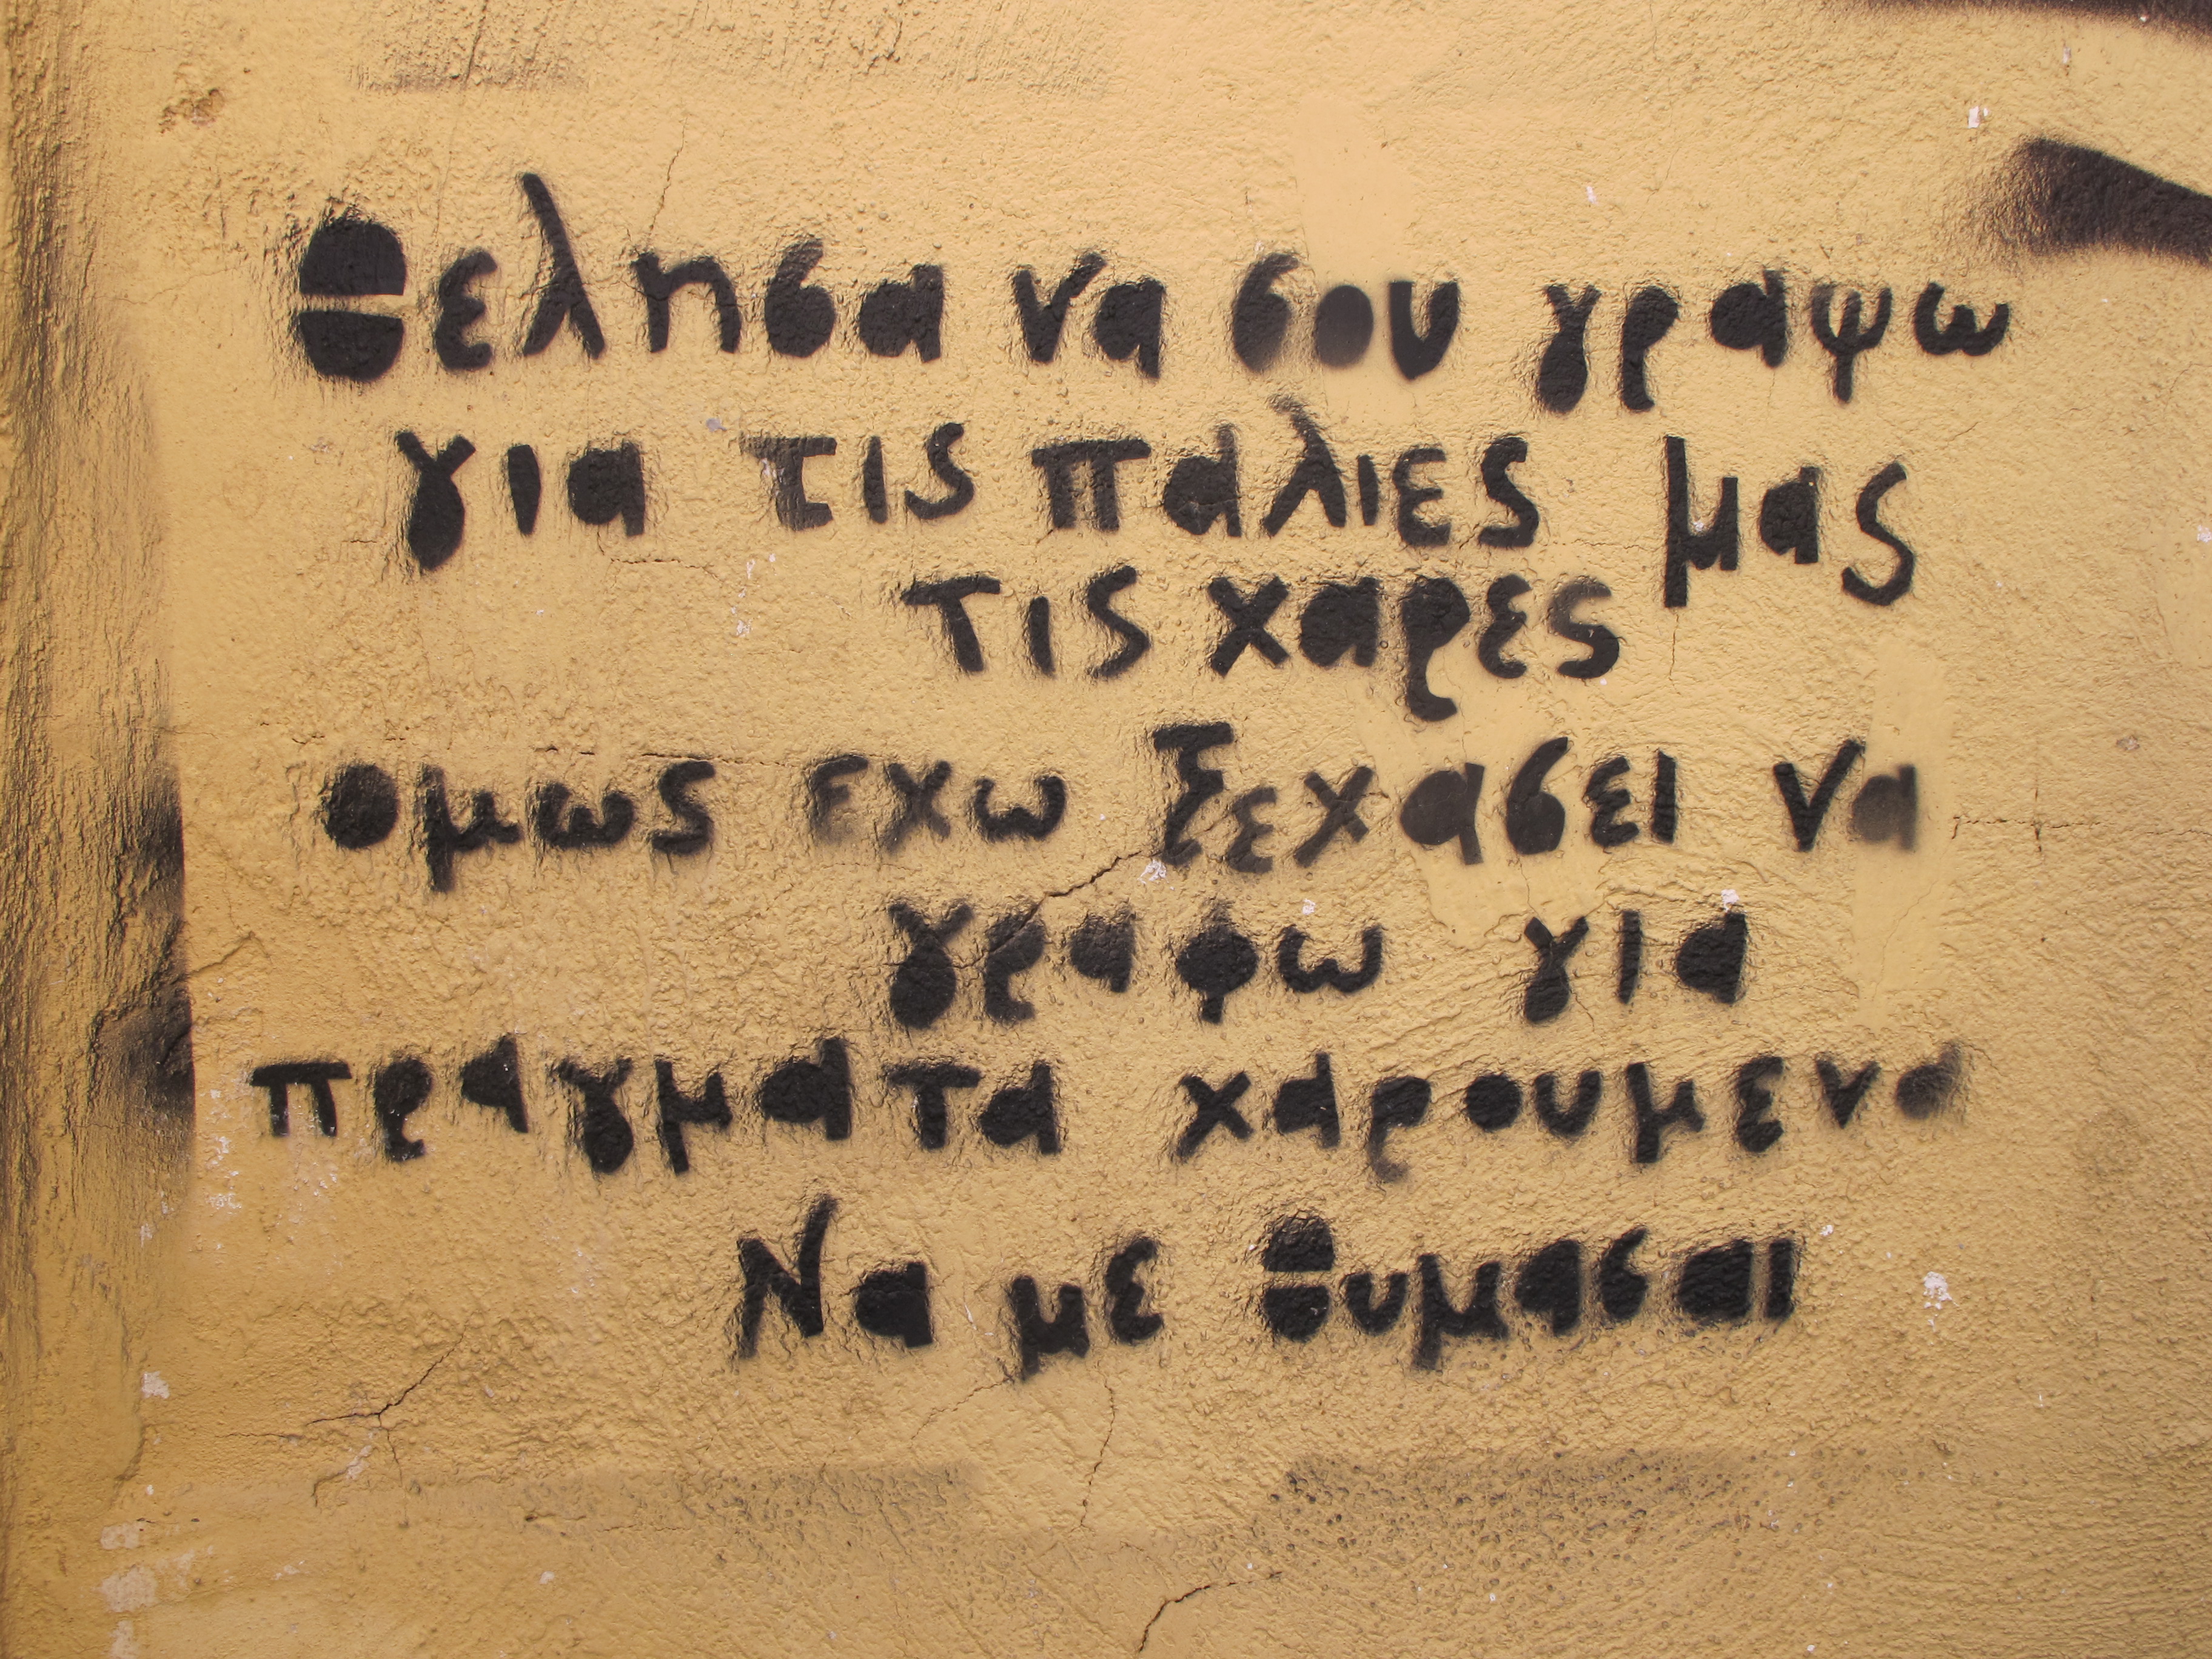 Θελησα να σου γραψω
για τις παλιες μας
τις χαρες
ομως εχω ξεχασει να
γραφω για
πραγματα χαρουμενα
Να με θυμασαι